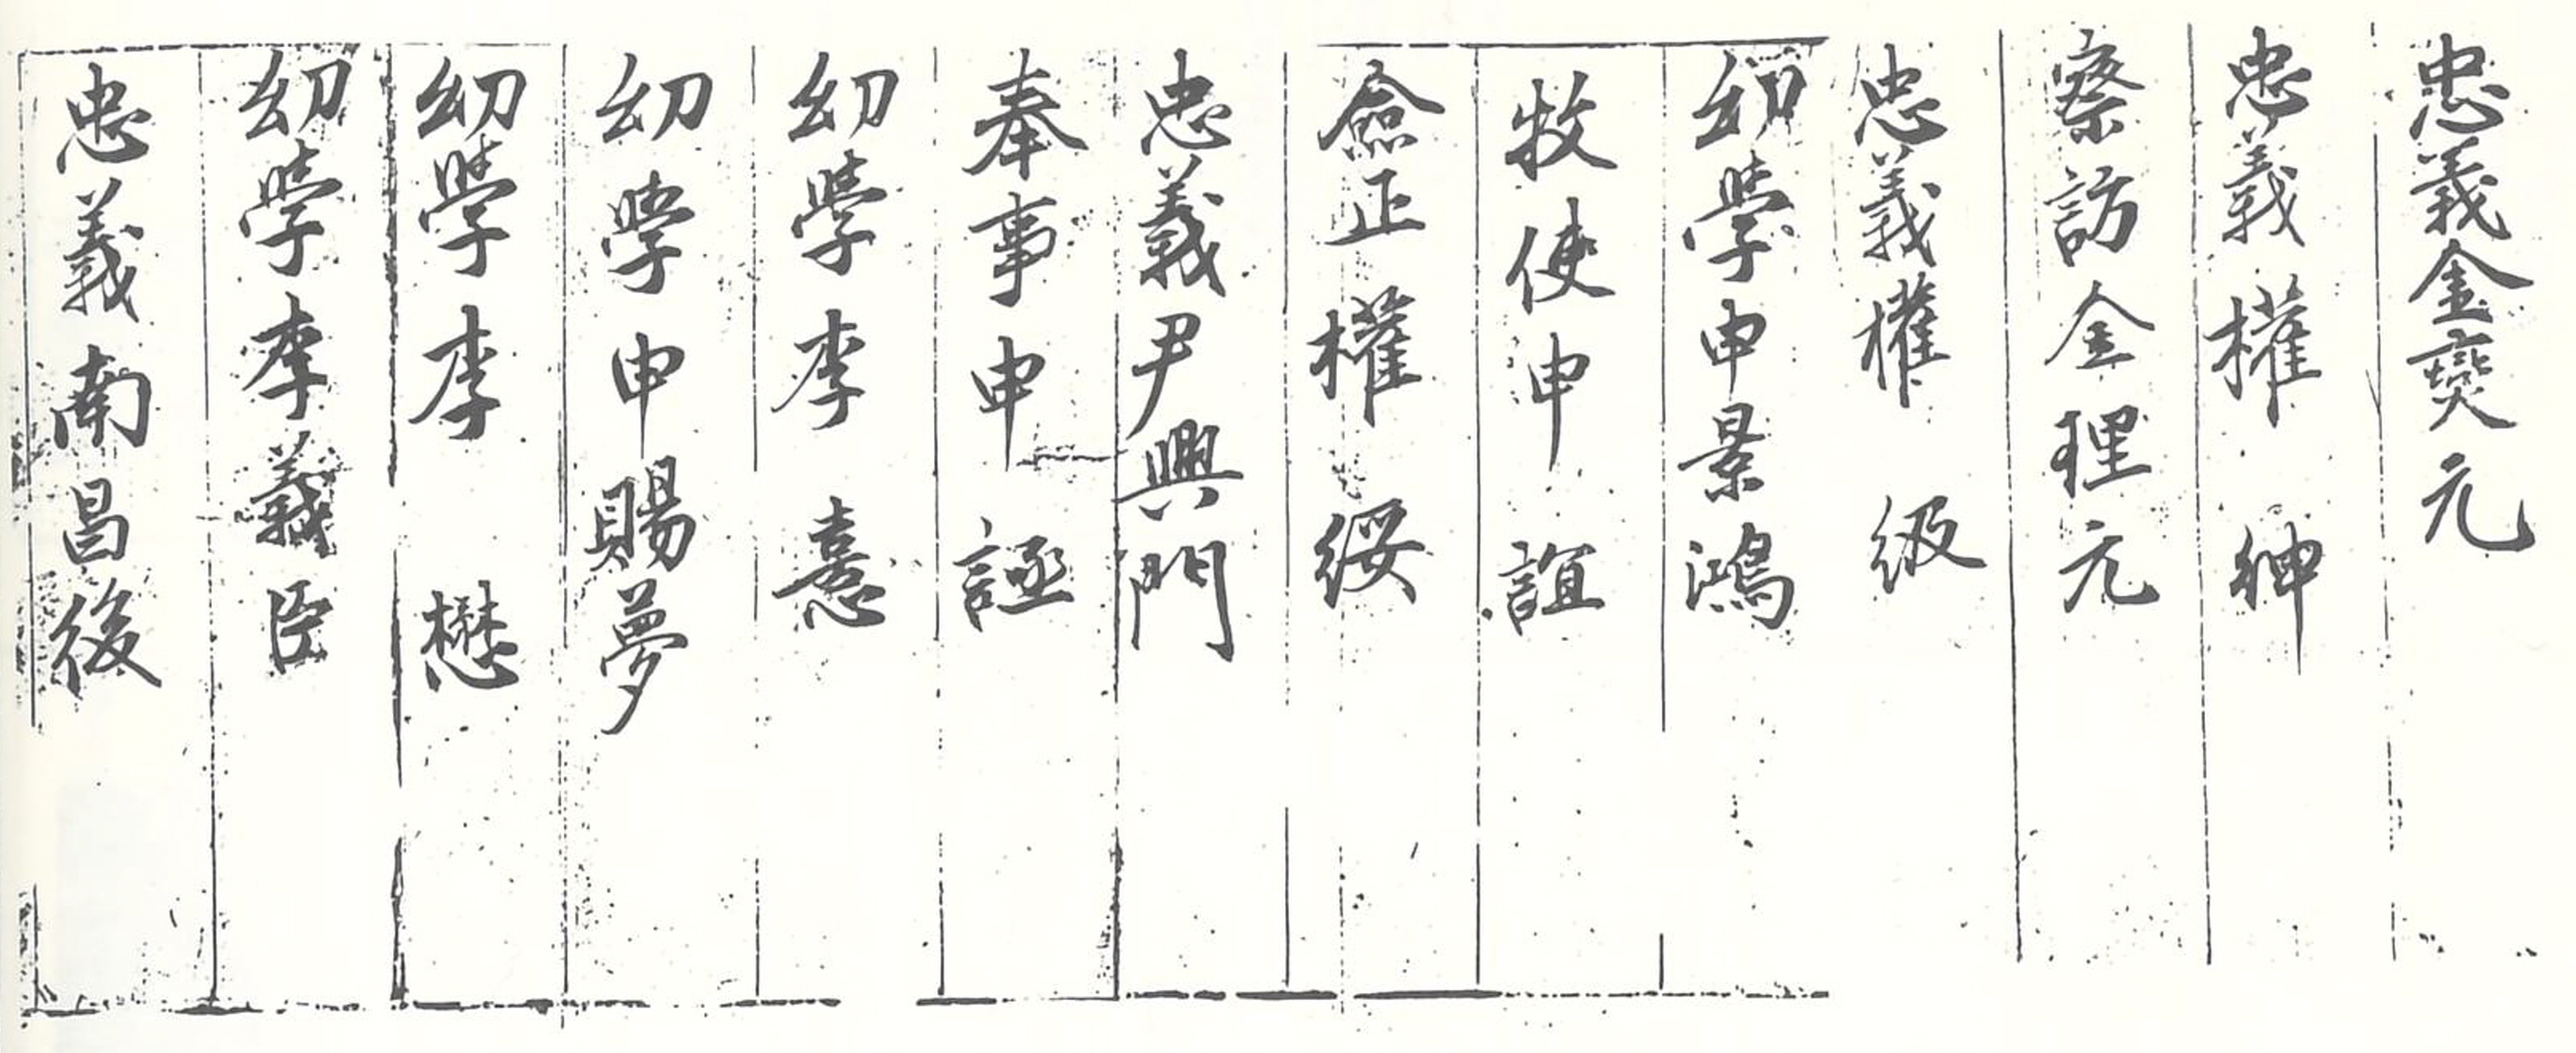 忠義金奭元
忠義權紳
察訪金理元
忠義權級
幼學申景鴻
牧使申誼
僉正權綏
忠義尹興門
奉事申䛣
幼學李憙
幼學申賜夢
幼學李懋
幼學李義臣
忠義南昌後